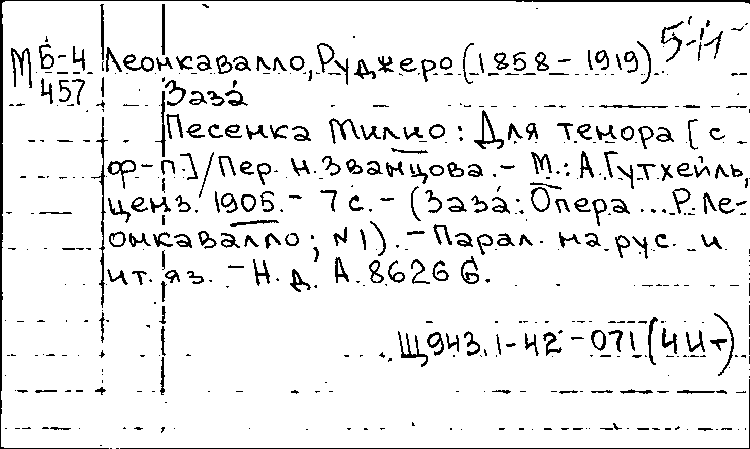 М Б-4 Леонкавалло, Руджеро (1858-1919)
457 Заза́
Песенка Милио: Для тенора [с
ф-п.] / Пер. Н. Званцова. - М.: А. Гутхейль,
ценз. 1905. - 7 с. - (Заза́: Опера ... Р. Ле-
онкавалло; N 1). - Парал. на рус. и
ит. яз. - Н. д. А. 8626 G.
Щ943.1-42-071(4Ит)